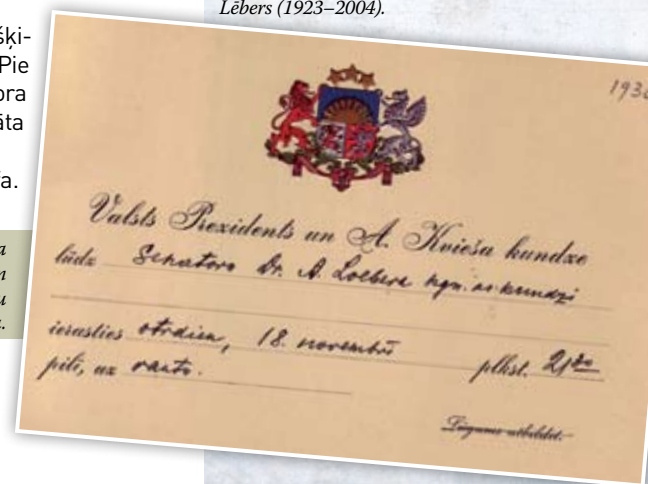 Lēbers (1923–2004).
1930
Valsts Prezidents un A. Kvieša kundze
lūdz Senatoru Dr. A. Loebera kgu. ar kundzi
ierasties otrdien, 18. novembrī plkst. 21⁰⁰
pilī, uz rautu.
Lūgums atbildēt.